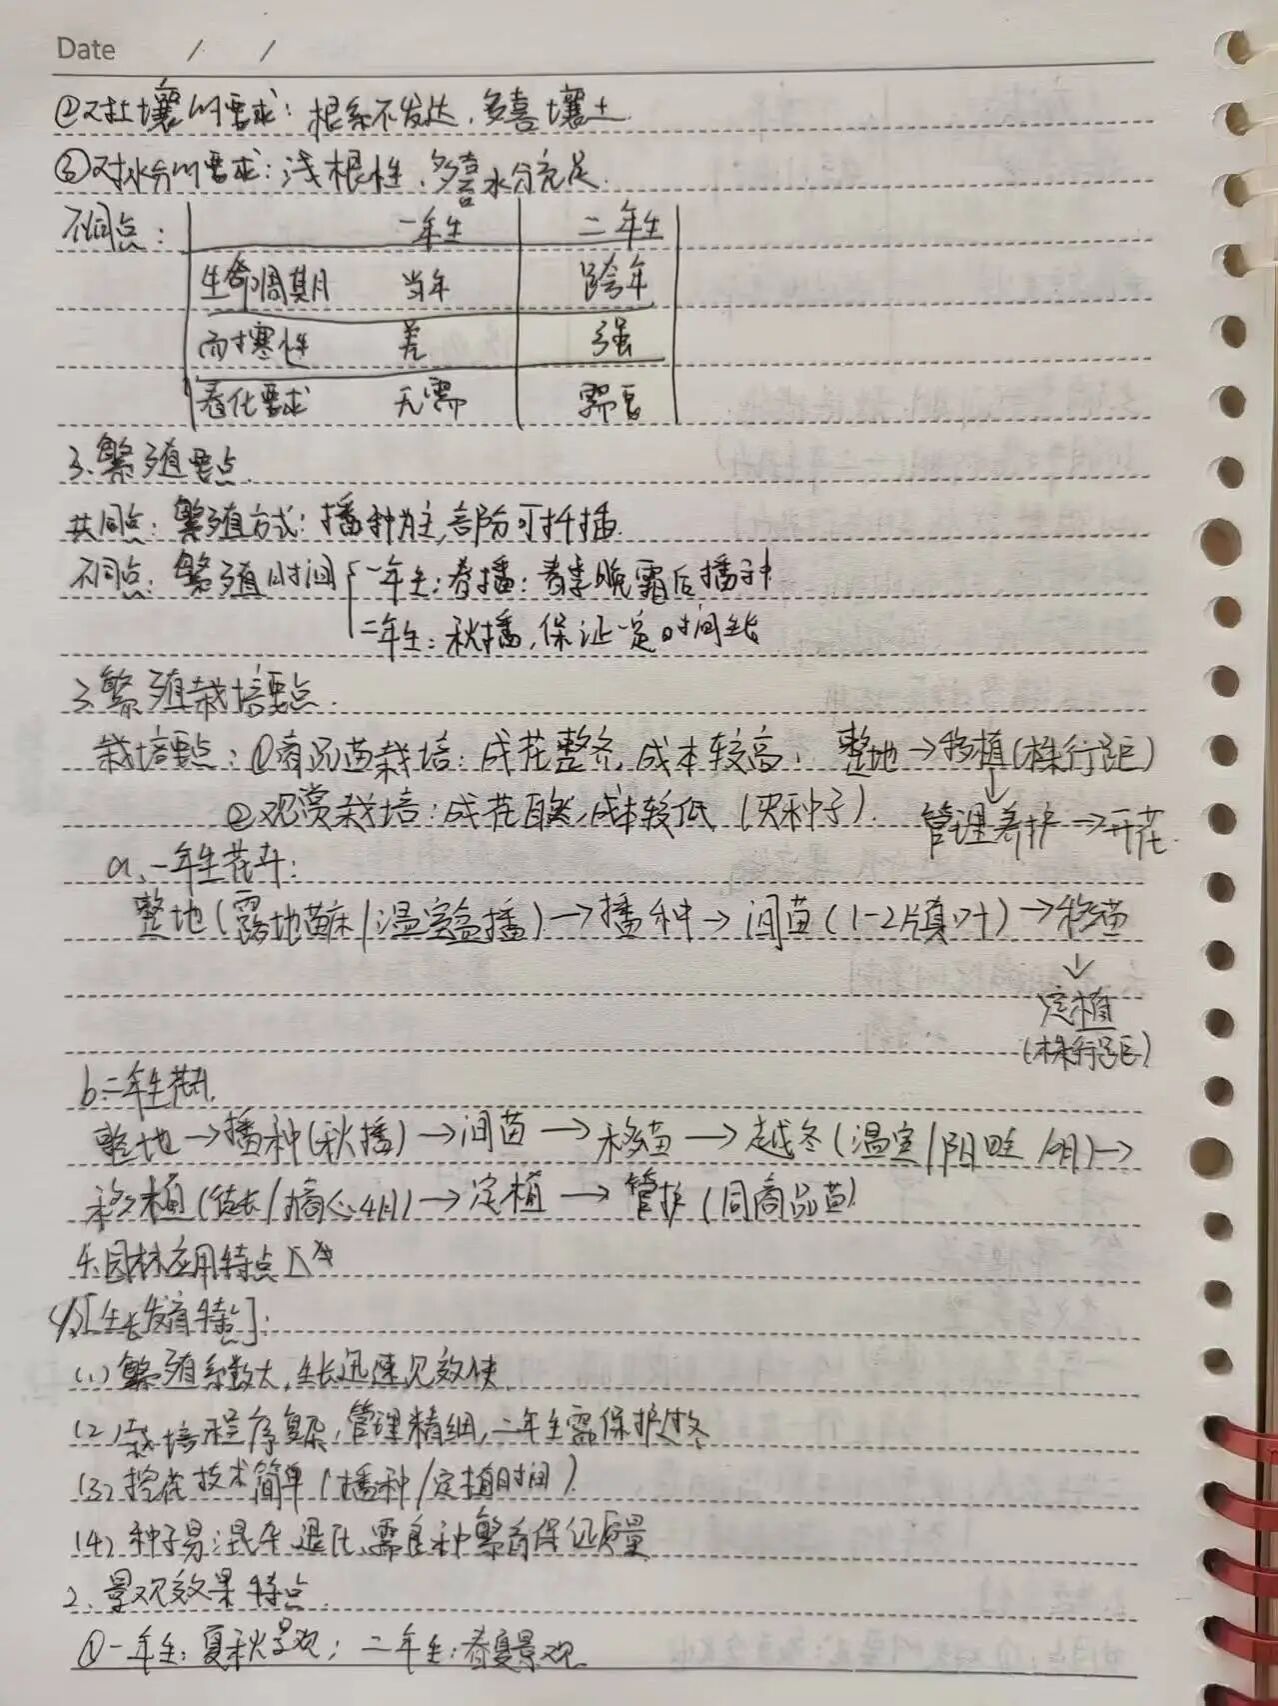 Date / /
②对土壤的要求：根系不发达，多喜壤土
③对水分的要求：浅根性，多喜水分充足.
不同点： 一年生 二年生
生命周期 当年 跨年
耐寒性 差 强
春化要求 无需 需要
3.繁殖要点.
共同点：繁殖方式：播种为主，部分可扦插.
不同点：繁殖时间 一年生：春播：春季晚霜后播种
二年生：秋播，保证一定时间生长
3.繁殖栽培要点.
栽培要点：①商品苗栽培：成花整齐，成本较高， 整地→移植(株行距)
②观赏栽培：成花自然，成本较低（买种子）. ↓管理养护→开花.
a、一年生花卉：
整地(露地苗床/温室盆播)→播种→间苗(1-2片真叶)→移苗
↓
定植
(株行距)
b.二年生花卉.
整地→播种(秋播)→间苗→移苗→越冬(温室/阳畦)→
移植(摘心4月)→定植→管护(同商品苗)
园林应用特点
1.[生长发育特点]：
(1)繁殖系数大，生长迅速见效快.
(2)栽培程序复杂，管理精细，二年生需保护过冬
(3)控花技术简单(播种/定植时间).
(4)种子易混杂退化，需良种繁育保证质量
2.景观效果特点.
①一年生：夏秋景观；二年生：春夏景观.